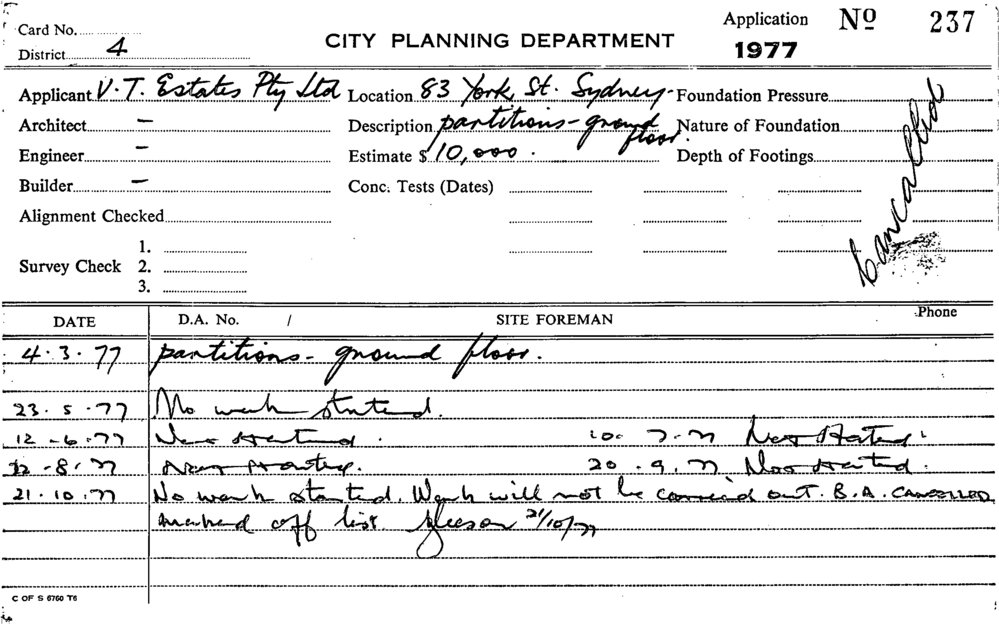 Card No.
District 4
CITY PLANNING DEPARTMENT
Application Nº 237
1977
Applicant V.T. Estates Pty Ltd Location 83 York St. Sydney. Foundation Pressure
Architect — Description partitions - ground floor. Nature of Foundation
Engineer — Estimate $ 10,000. Depth of Footings
Builder — Conc. Tests (Dates)
Cancelled
Alignment Checked
1.
Survey Check 2.
3.
DATE D.A. No. / SITE FOREMAN Phone
4.3.77 partitions - ground floor.
23.5.77 No work started.
12-6-77 Not started. 10.7.77 Not started.
12-8-77 Not started. 20.9.77 Not started.
21.10.77 No work started. Work will not be carried out. B.A. CANCELLED
marked off list. Gleeson 21/10/77
C OF S 6760 T6